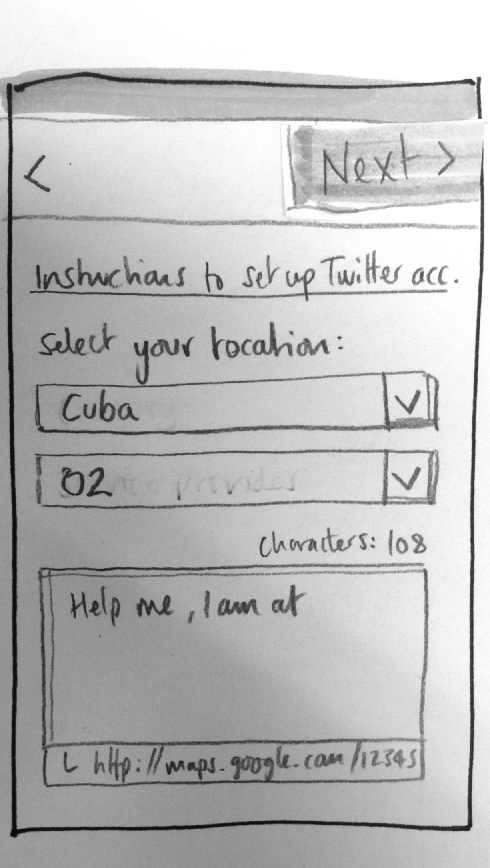 <
Next >
Instructions to set up Twitter acc.
Select your location:
Cuba
O2
characters: 108
Help me, I am at
http://maps.google.com/12345